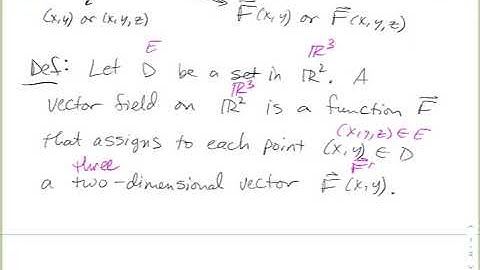 (x,y) or (x,y,z) F(x,y) or F(x,y,z)
E ℝ³
Def: Let D be a set in ℝ². A
ℝ³
vector field on ℝ² is a function F
(x,y,z) ∈ E
that assigns to each point (x,y) ∈ D
three F
a two-dimensional vector F(x,y).